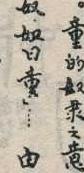 。童的奴隶之意
奴,奴曰童」… 由